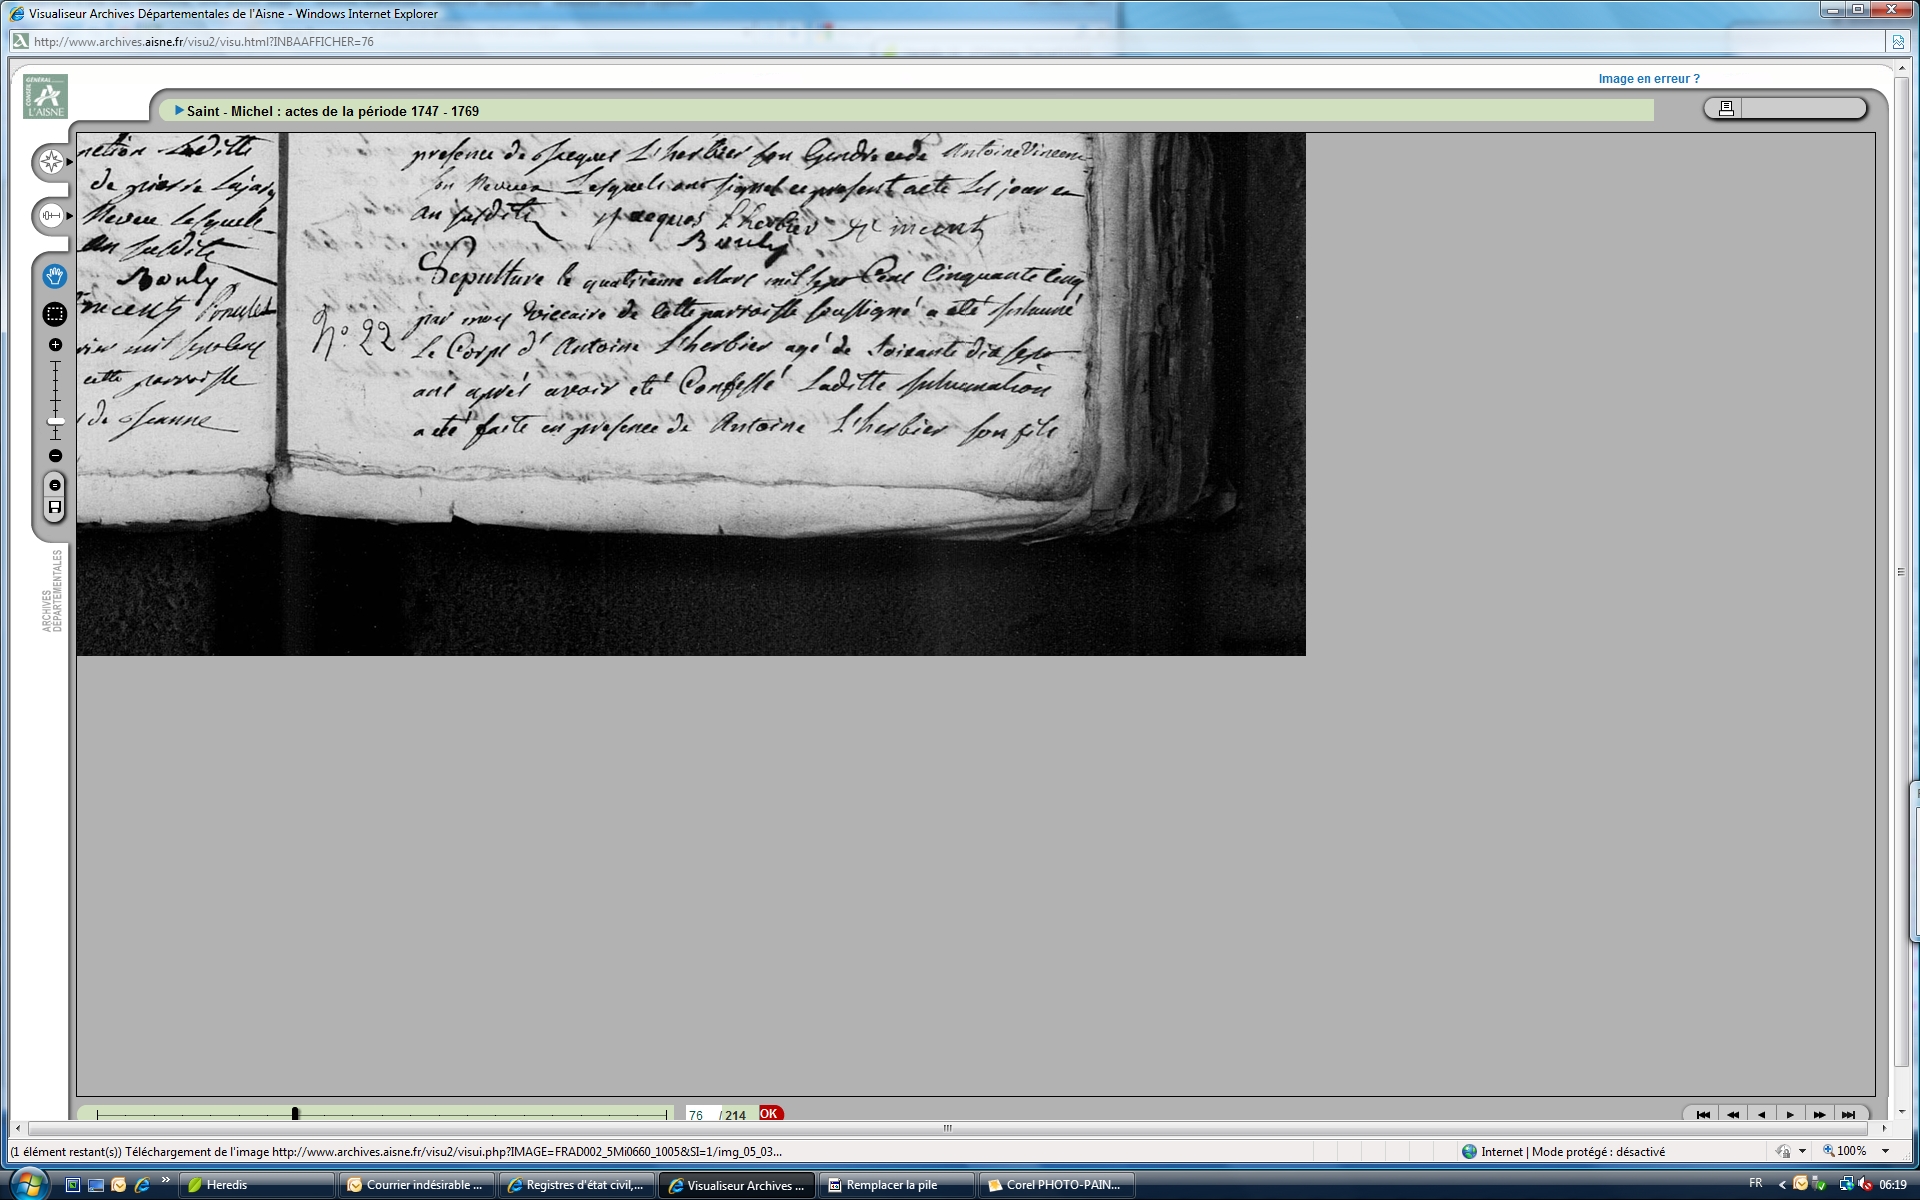 Visualiseur Archives Départementales de l'Aisne - Windows Internet Explorer
http://www.archives.aisne.fr/visu2/visu.html?INBAAFFICHER=76
Image en erreur ?
CONSEIL GÉNÉRAL
L'AISNE
Saint - Michel : actes de la période 1747 - 1769
laditte
de pierre Lajare
Neveu lesquelle
an susdits
Bouly
vincent
mil sept cens
cette parroisse
de Jeanne
presence de Jacques L'herbier son Gendre et de Antoine Vincent
son Neveu Lesquels ont signet ce present acte Les jour en
an susdits Jacques L'herbier A Vincent
Bouly
Sepulture le quatrieme Mars mil sept Cens Cinquante Cinq
par moy viccaire de Cette parroisse soussigné a eté inhumé
N° 22
Le Corps d'Antoine L'herbier agé de soixante dix sept
ans aprés avoir eté Confessé Laditte inhumation
a eté faite en presence de Antoine L'herbier son fils
ARCHIVES
DEPARTEMENTALES
76 / 214 OK
(1 élément restant(s)) Téléchargement de l'image http://www.archives.aisne.fr/visu2/visui.php?IMAGE=FRAD002_5Mi0660_1005&SI=1/img_05_03...
Internet | Mode protégé : désactivé
100%
Heredis
Courrier indésirable ...
Registres d'état civil,...
Visualiseur Archives ...
Remplacer la pile
Corel PHOTO-PAIN...
FR
06:19